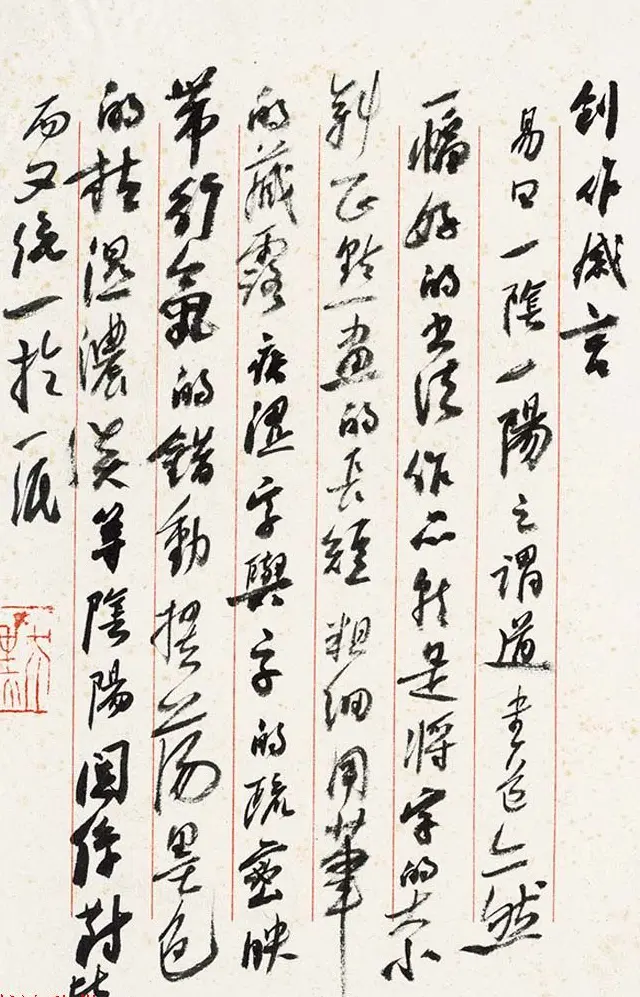 創作感言
易曰一陰一陽之謂道書道亦然
一幅好的書法作品就是將字的大小
斜正點畫的長短粗細用筆
的藏露疾澀字與字的疏密映
帶行氣的錯動蕩墨色
的枯濕濃淡等陰陽關係對比
而又統一於一紙